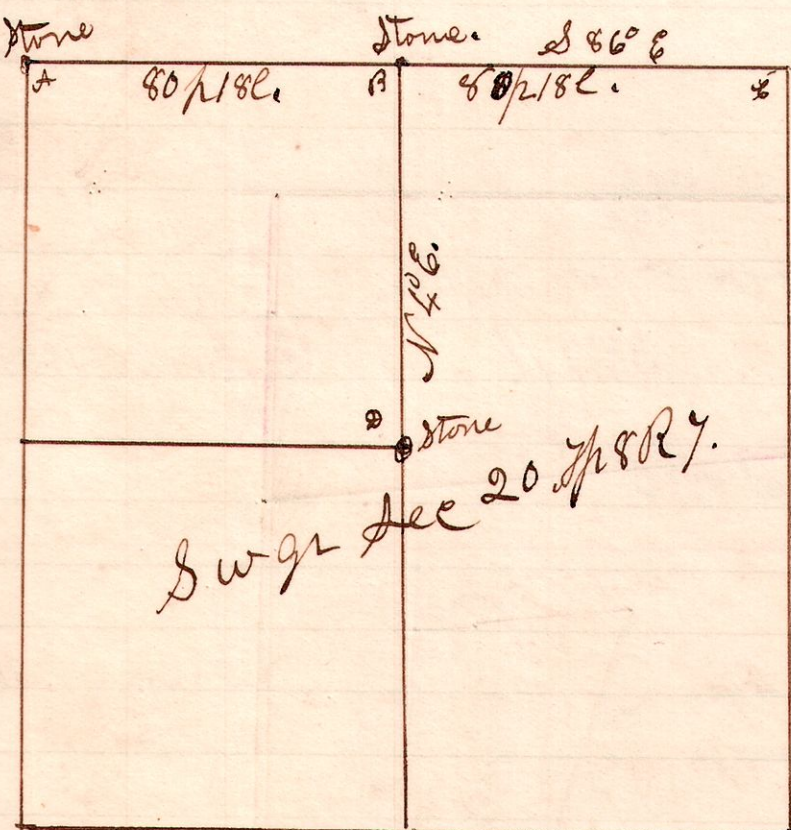 Stone Stone. S 86° E
A 80 p 18 l. B 80 p 18 l.
N 4° E.
D Stone
S W qr Sec 20 Tp 8 R 7.